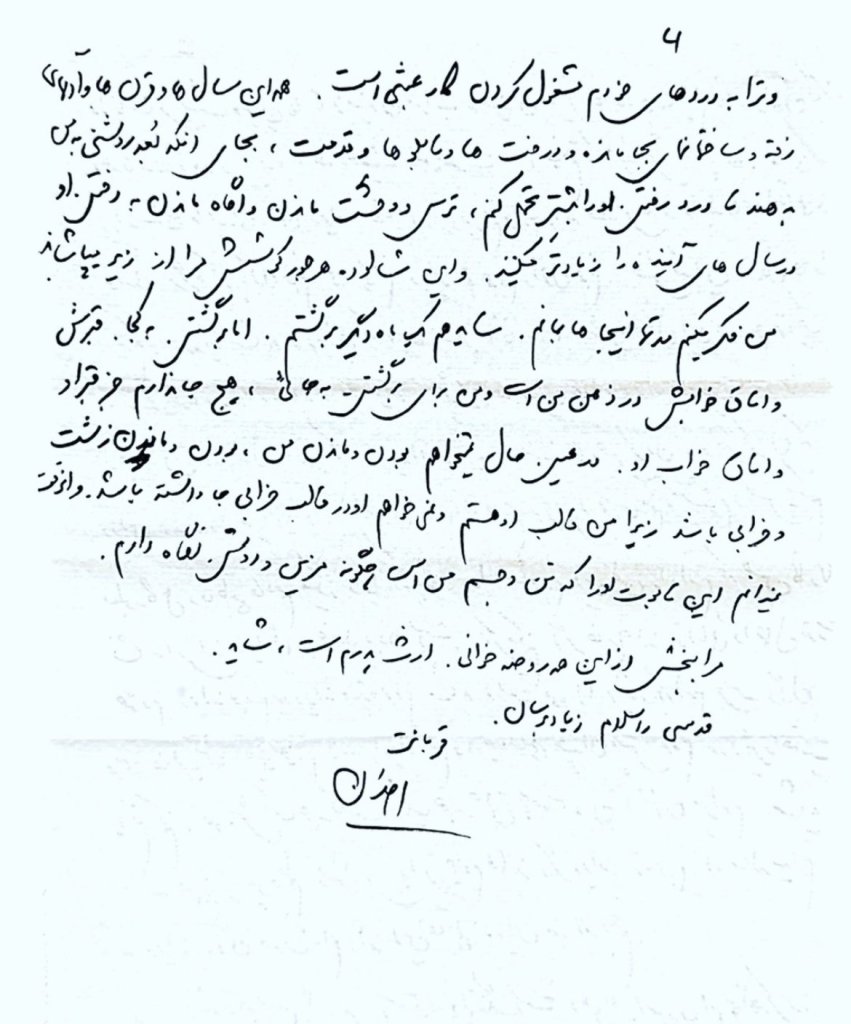 ۴
و ترا به دردهای خودم مشغول کردن کار عبثی است. همه این سال ها و قرن ها و آدمهای
رفته و ساختمانهای بجا مانده و درخت ها و تابلوها و قدمت، بجای اینکه بُعد روشنی به من
بدهند تا درد رفتن او را بیشتر تحمل کنم، ترس و وحشت ماندن و آگاه ماندن به رفتن او
در سال های آینده را زیادتر میکنند. و این شالوده هر جور کوشش مرا از زیر میپاشاند.
من فکر میکنم مدتها اینجا ها بمانم. شاید هم یک ماه دیگر برگشتم. اما برگشتن به کجا. قبرش
و اتاق خوابش در ذهن من است و من برای برگشتن به جائی، هیچ جا ندارم جز قبر او
و اتاق خواب او. در عین حال نمیخواهم بودن و ماندن من، بودن و ماندن زشت
و خرابی باشد زیرا من قالب او هستم و نمی خواهم او در قالب خرابی جا داشته باشد. و آنوقت
نمیدانم این تابوت او را که تن و جسم من است چگونه مزین و روشن نگاه دارم.
مرا ببخش از این همه روضه خوانی. ارث پدرم است، شاید.
قدسی را سلام زیاد برسان.
قربانت